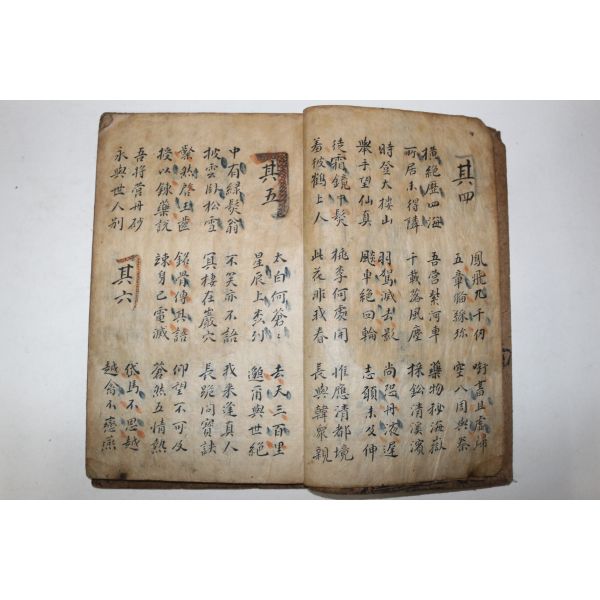 其四
鳳飛九千仞
五章備綵珎
啣書且虛歸
空入周與秦
橫絶歷四海
所居未得隣
吾營紫河車
千載落風塵
藥物秘海嶽
採鈆清溪濱
時登大樓山
舉手望仙眞
羽駕滅去影
飇車絶回輪
尚恐丹液遲
志願未及伸
徒霜鏡下髮
羞彼鶴上人
桃李何處開
此花非我春
惟應清都境
長與韓衆親
其五
太白何蒼〻
星辰上森列
去天三百里
邈爾與世絶
中有綠髮翁
披雲臥松雪
不笑亦不語
冥棲在巖穴
我来逢真人
長跪問寶訣
粲然啓玉齒
授以鍊藥說
銘骨傳其語
竦身已電滅
仰望不可及
蒼然五情熱
吾將營丹砂
永與世人別
其六
岱馬不思越
越禽不戀燕